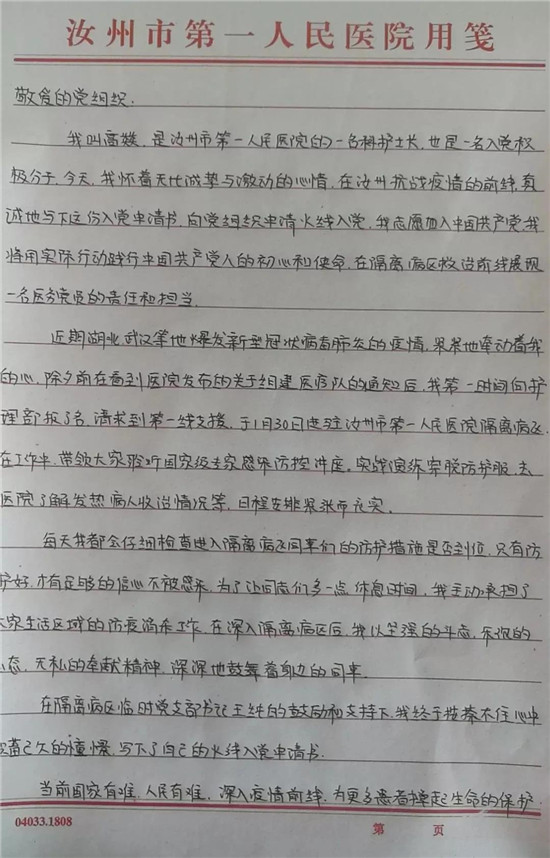 汝州市第一人民医院用笺
敬爱的党组织.
我叫高媛,是汝州市第一人民医院的一名科护士长,也是一名入党积
极分子,今天,我怀着无比诚挚与激动的心情,在汝州抗战疫情的前线,真
诚地写下这份入党申请书,向党组织申请火线入党,我志愿加入中国共产党,我
将用实际行动践行中国共产党人的初心和使命,在隔离病区救治前线展现
一名医务党员的责任和担当.
近期湖北,武汉等地爆发新型冠状病毒肺炎的疫情,紧紧地牵动着我
的心,除夕前在看到医院发布的关于组建医疗队的通知后,我第一时间向护
理部报了名,请求到第一线支援,于1月30日进驻汝州市第一人民医院隔离病区.
在工作中,带领大家聆听国家级专家感染防控讲座,实战演练穿脱防护服,去
医院了解发热病人收治情况等,日程安排紧张而充实.
每天我都会仔细检查进入隔离病区同事们的防护措施是否到位,只有防
护好,才有足够的信心不被感染,为了让同志们多一点休息时间,我主动承担了
大家生活区域的防疫消杀工作,在深入隔离病区后,我以坚强的斗志,乐观的
心态,无私的奉献精神,深深地鼓舞着身边的同事.
在隔离病区临时党支部书记王纯的鼓励和支持下,我终于按捺不住心中
蓄已久的憧憬,写下了自己的火线入党申请书.
当前国家有难,人民有难,深入疫情前线,为更多患者撑起生命的保护
04033.1808
第 页